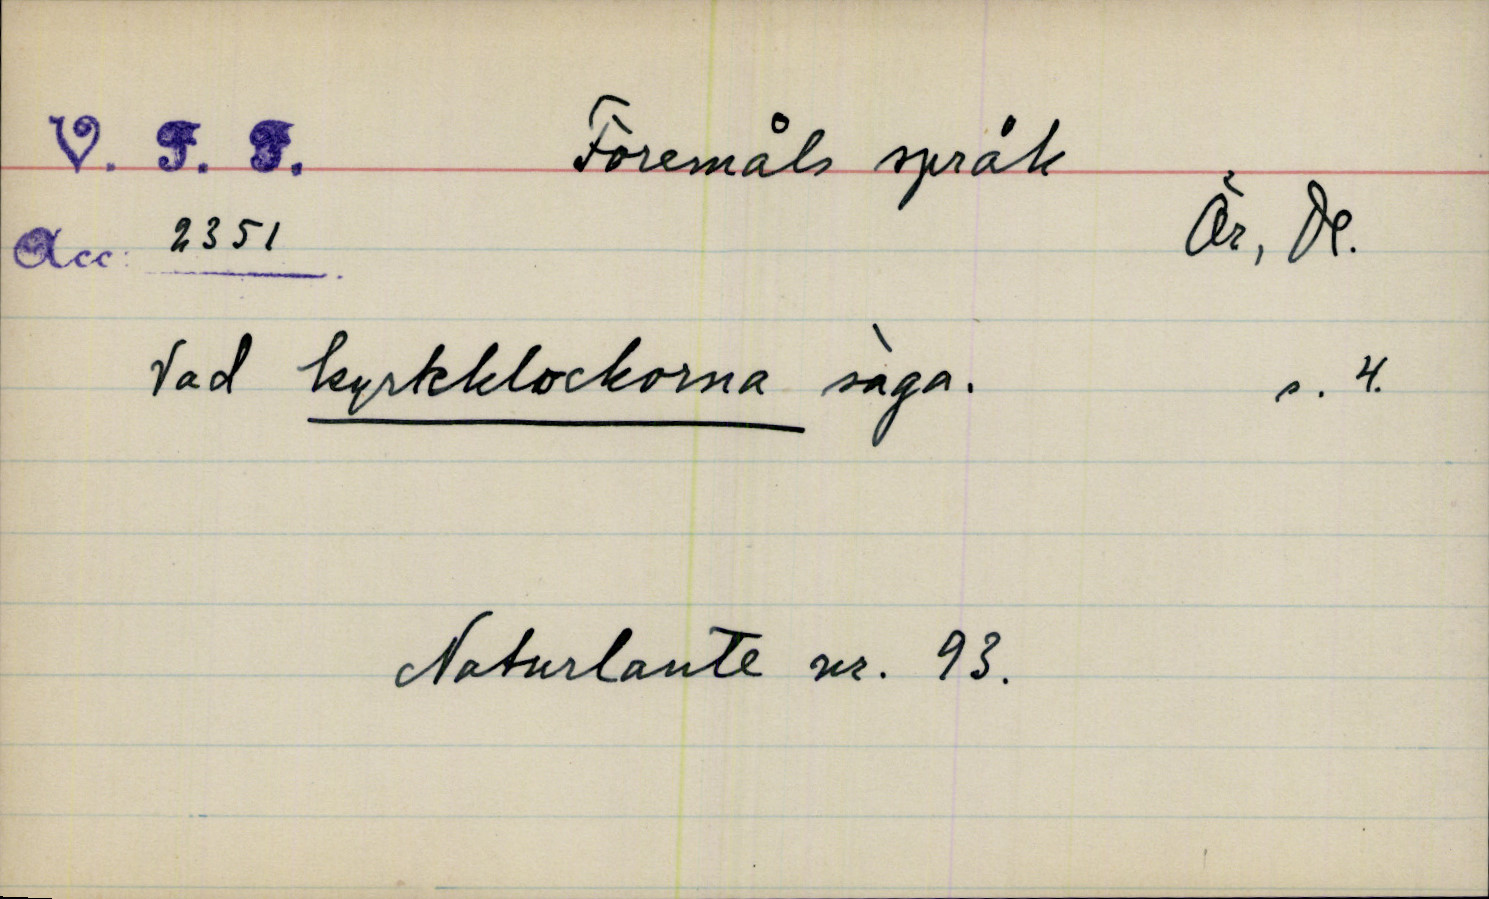 V. F. F. Föremåls språk
Acc: 2351 Är, Dl.
Vad kyrkklockorna säga. s. 4.
Naturlaute nr. 93.